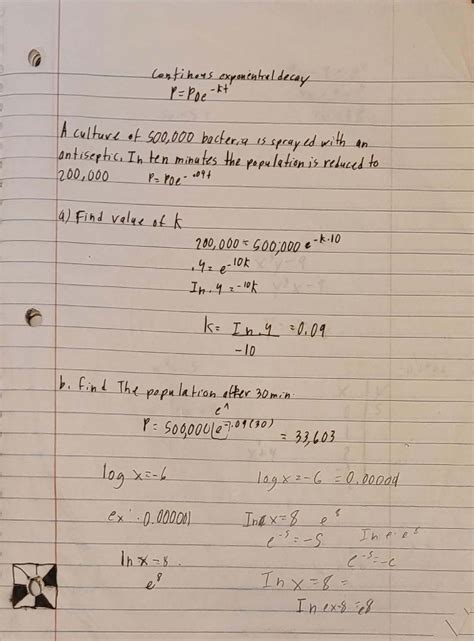 Continous exponential decay
P = P0e^-kt
A culture of 500,000 bacteria is sprayed with an
antiseptic. In ten minutes the population is reduced to
200,000 P = P0e^-.09t
a) Find value of k
200,000 = 500,000 e^-k·10
.4 = e^-10k
In .4 = -10k
k = In .4 / -10 = 0.09
b. find The population after 30 min.
e^
P = 500,000(e^-).09(30) = 33,603
log x = -6 log x = -6 = 0.00000
ex: 0.000001 In x = 8 e^8
e^-5 = -5
In x = 8. e^-5 =
e^8 In x = 8 =
In ex = 8 = e8